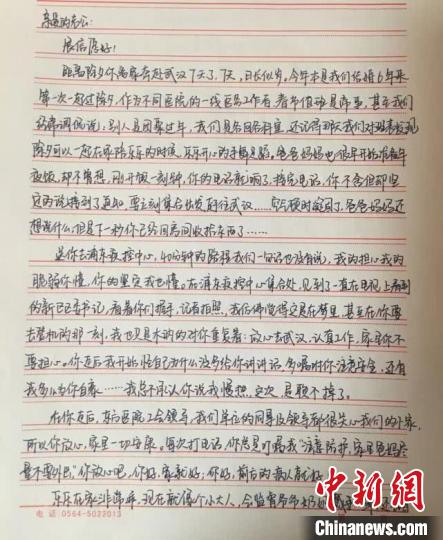 亲爱的老公：
展信愿好！
距离除夕你离家奔赴武汉7天了，7天，日长似岁。今年本是我们结婚6年来
第一次一起过除夕，作为不同医院的一线医务工作者春节值班是常事，甚至我们
经常调侃说：别人是团聚过年，我们是各回各科室，还记得那天我们对班表发现
除夕可以一起在家陪乐乐的时候，乐乐开心的手舞足蹈。爸爸妈妈也很早开始准备年
夜饭，却不曾想，刚开饭一刻钟，你的电话就响了，接完电话，你不舍但却坚
定的说接到了通知，要立刻集合出发前往武汉……空气顿时凝固了，爸爸妈妈还
想说什么但是下一秒你已经回房间收拾东西了……
送你去浦东疾控中心，40分钟的路程我们一句话也没有说，我的担心我的
脆弱你懂，你的坚定我也懂。在浦东疾控中心集合处，见到了一直在电视上看到
的新区区委书记，看着你们握手，记者拍照，我仿佛觉得这是在梦里，甚至在你要
去登机的那一刻，我也只是木呐的对你重复着：放心去武汉，认真工作，家里你不
要担心。你走后我开始怪自己为什么没多给你讲讲话，多嘱咐你注意安全，还有
我多么为你自豪……我总不承认你说我慢热，这次，是赖不掉了。
在你走后，东方医院工会领导，我们单位的同事及领导都很关心我们的小家，
所以你放心，家里一切安康。每次打电话，你总是叮嘱我"注意防护，家里爸妈尽
量不要外出"你放心吧，你好，家就好；你好，前方的病人就好。
乐乐在家非常乖，现在就像个小大人，会监督爷爷奶奶
电话 0564-5022013
中新网
www.chinanews.com